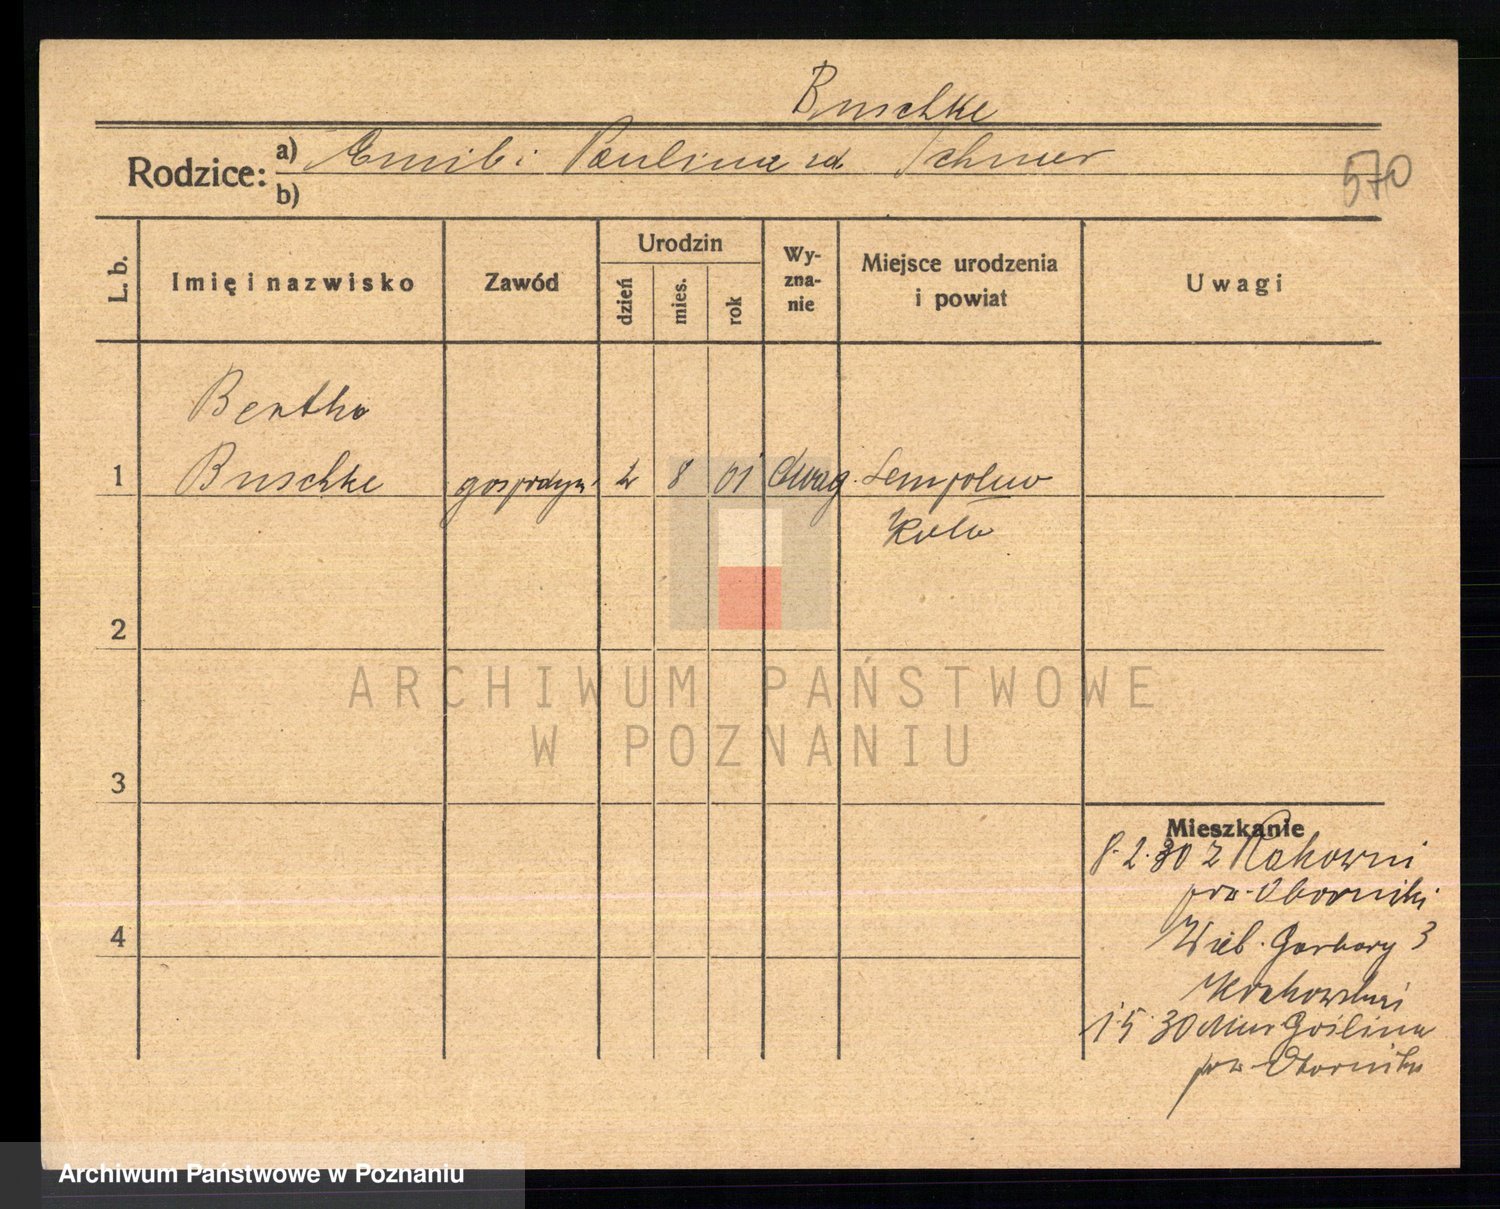 Buschke
Rodzice: a) Emil i Paulina zd. Schner
b)
570
L. b.
Imię i nazwisko
Zawód
Urodzin
dzień
mies.
rok
Wy-
zna-
nie
Miejsce urodzenia
i powiat
Uwagi
Bertha
1 Buschke gospodyni 2 8 01 ewag. Sempolno
Koło
2
3
4
ARCHIWUM PAŃSTWOWE
W POZNANIU
Mieszkanie
8.2.30 z Rakowni
pow. Oborniki
Wielb. Garbary 3
1.5.30 Mur Goślina
pow. Oborniki
Archiwum Państwowe w Poznaniu